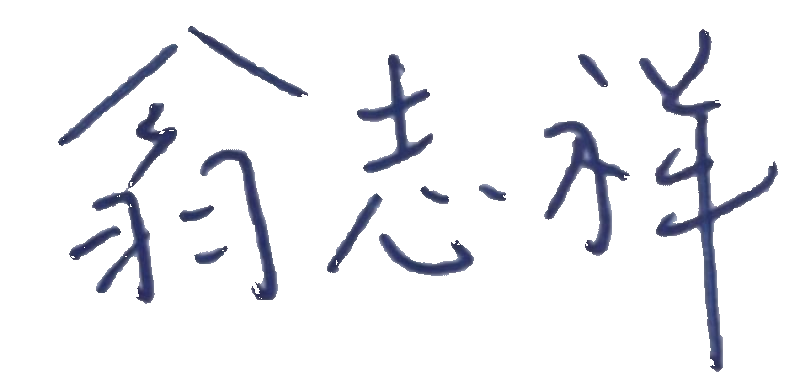 翁志祥